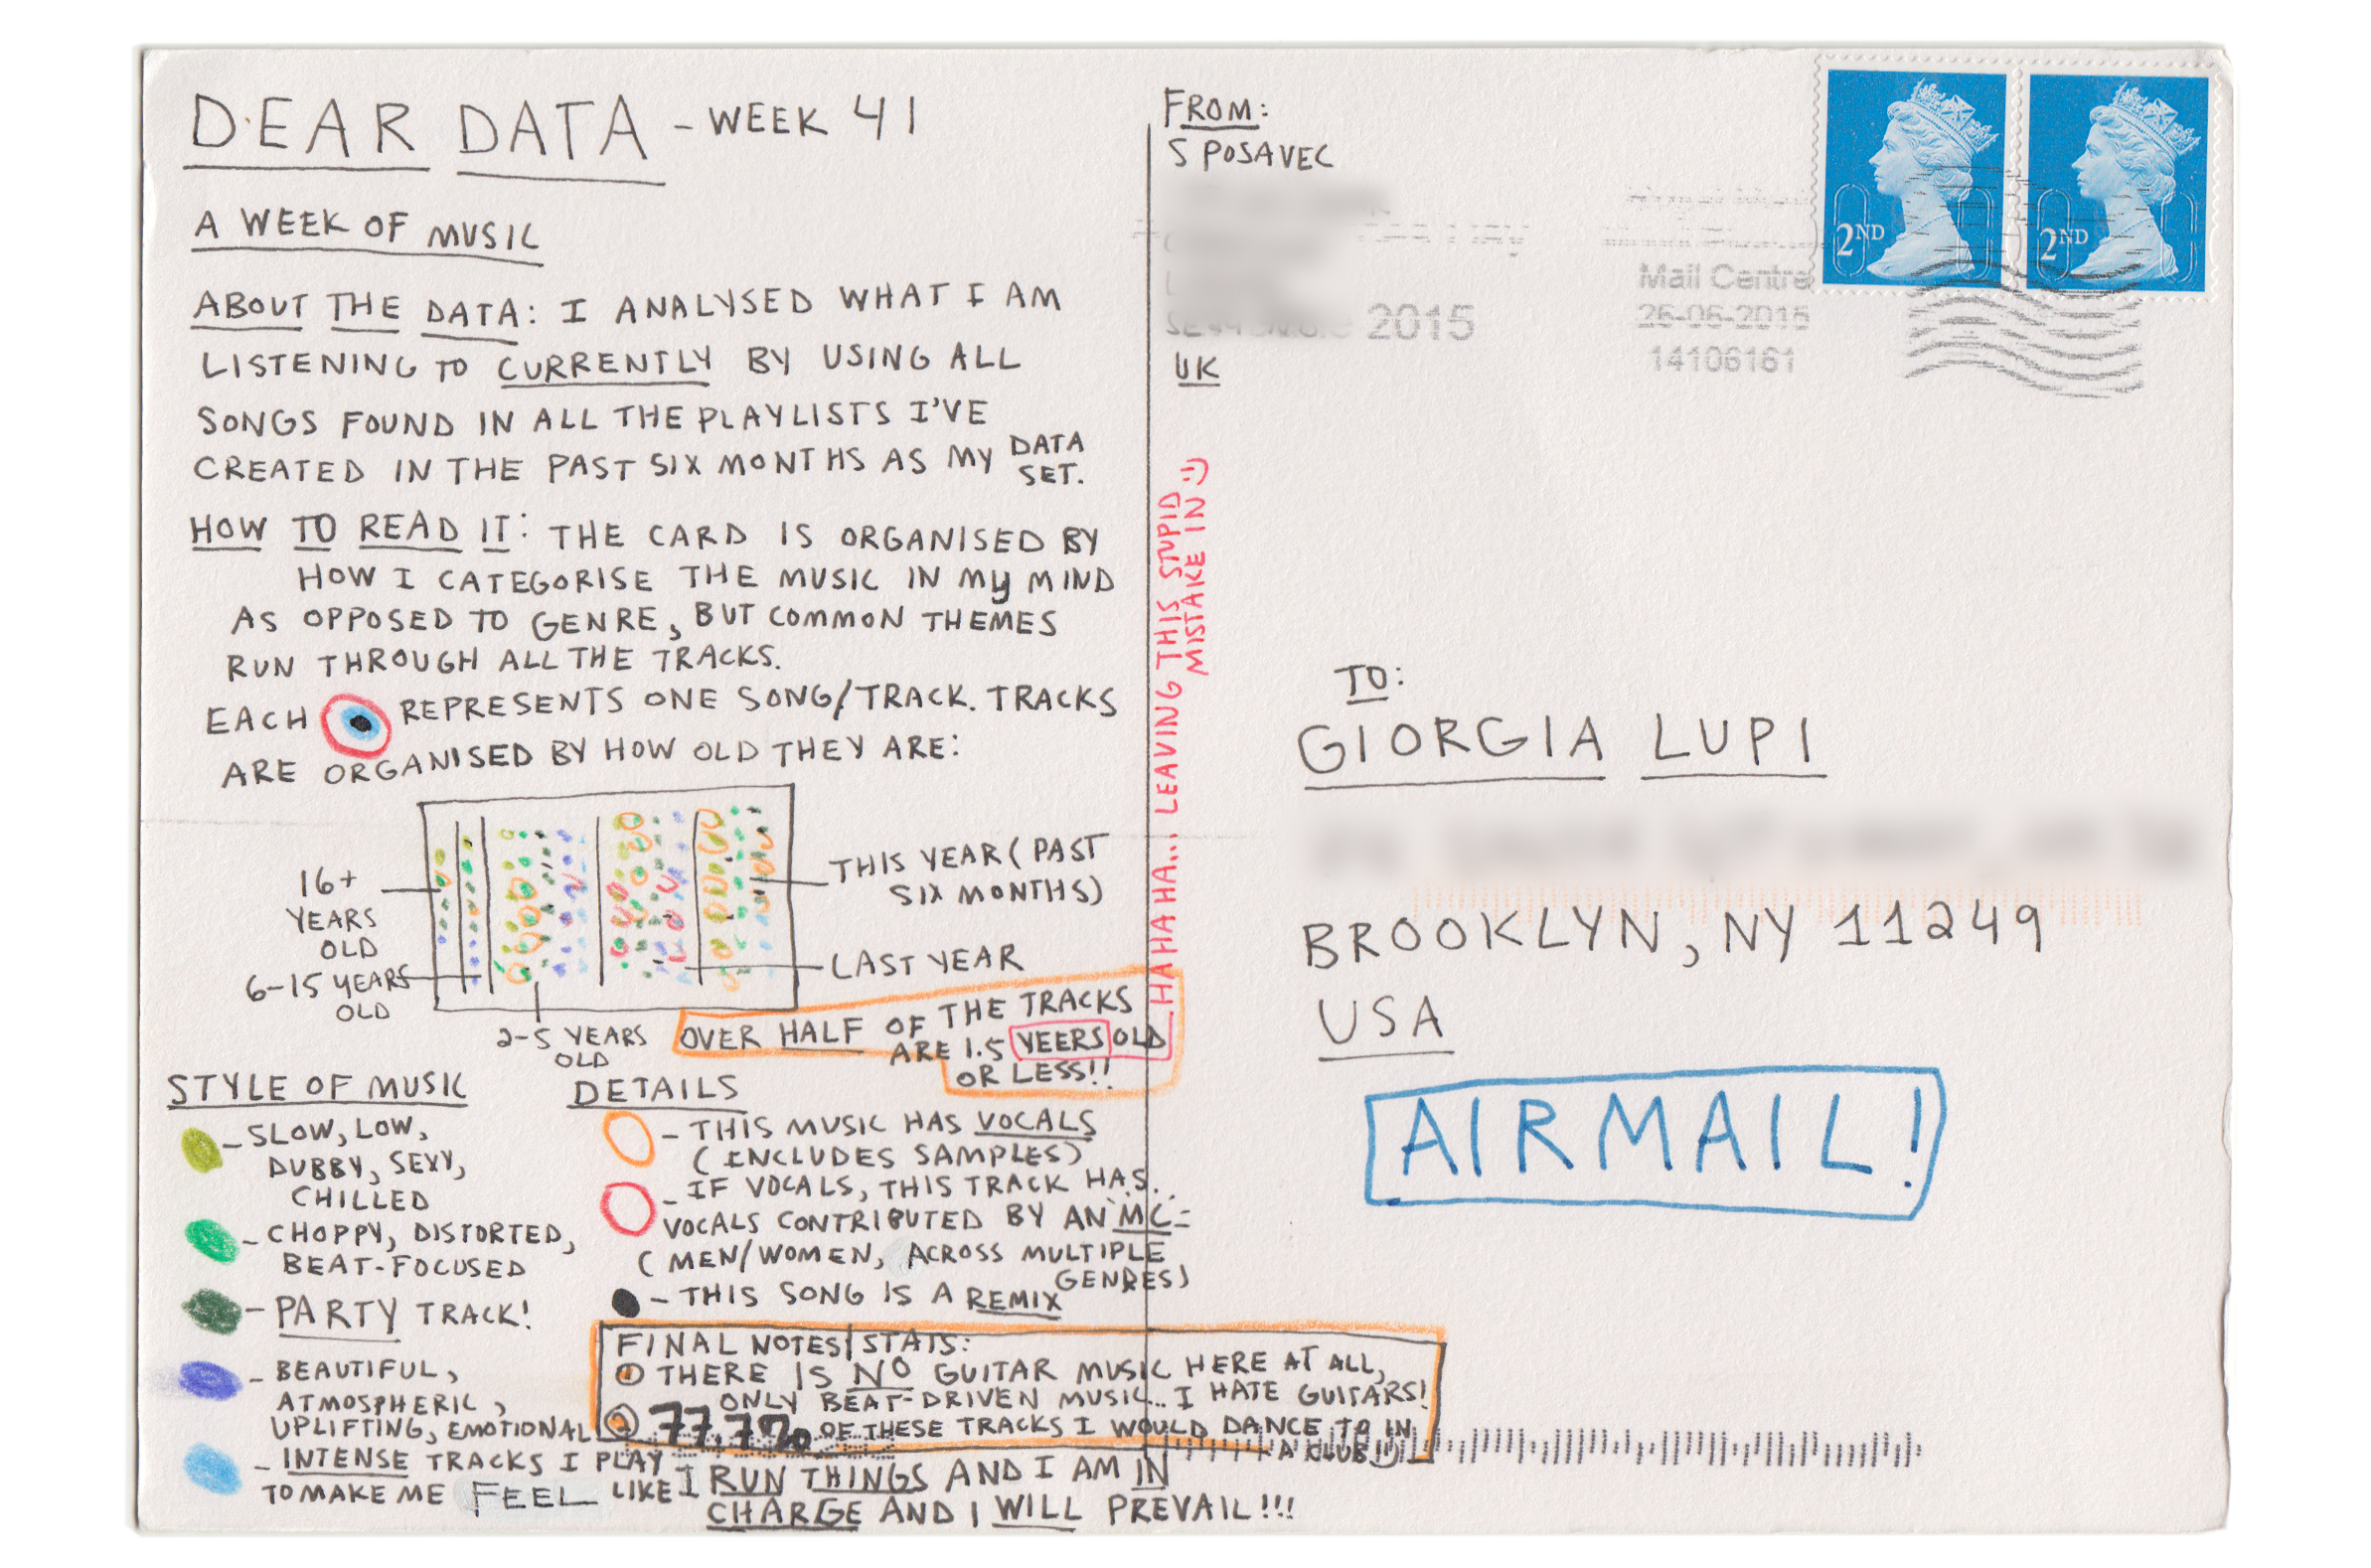 DEAR DATA - WEEK 41
A WEEK OF MUSIC
ABOUT THE DATA: I ANALYSED WHAT I AM
LISTENING TO CURRENTLY BY USING ALL
SONGS FOUND IN ALL THE PLAYLISTS I'VE
CREATED IN THE PAST SIX MONTHS AS MY DATA
SET.
HOW TO READ IT: THE CARD IS ORGANISED BY
HOW I CATEGORISE THE MUSIC IN MY MIND
AS OPPOSED TO GENRE, BUT COMMON THEMES
RUN THROUGH ALL THE TRACKS.
EACH REPRESENTS ONE SONG/TRACK. TRACKS
ARE ORGANISED BY HOW OLD THEY ARE:
16+
YEARS
OLD
6-15 YEARS
OLD
2-5 YEARS
OLD
THIS YEAR (PAST
SIX MONTHS)
LAST YEAR
OVER HALF OF THE TRACKS
ARE 1.5 YEERS OLD
OR LESS!!
HAHAHAHA... LEAVING THIS STUPID
MISTAKE IN :)
STYLE OF MUSIC
- SLOW, LOW,
DUBBY, SEXY,
CHILLED
- CHOPPY, DISTORTED,
BEAT-FOCUSED
- PARTY TRACK!
- BEAUTIFUL,
ATMOSPHERIC,
UPLIFTING, EMOTIONAL
- INTENSE TRACKS I PLAY
TO MAKE ME FEEL LIKE I RUN THINGS AND I AM IN
CHARGE AND I WILL PREVAIL!!!
DETAILS
- THIS MUSIC HAS VOCALS
(INCLUDES SAMPLES)
- IF VOCALS, THIS TRACK HAS
VOCALS CONTRIBUTED BY AN MC
(MEN/WOMEN, ACROSS MULTIPLE
GENRES)
- THIS SONG IS A REMIX
FINAL NOTES/STATS:
① THERE IS NO GUITAR MUSIC HERE AT ALL,
ONLY BEAT-DRIVEN MUSIC... I HATE GUITARS!
② 77.7% OF THESE TRACKS I WOULD DANCE TO IN
A CLUB!! :)
FROM:
S POSAVEC
UK
2015
Mail Centre
26-06-2015
14106161
2ND
2ND
TO:
GIORGIA LUPI
BROOKLYN, NY 11249
USA
AIRMAIL!